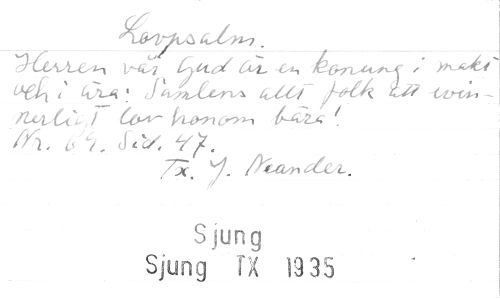 Lovpsalm.
Herren vår Gud är en konung i makt
och i ära: Samlens allt folk att evin-
nerligt lov honom bära!
Nr. 69. Sid. 47.
Tx. J. Neander.
Sjung
Sjung TX 1935